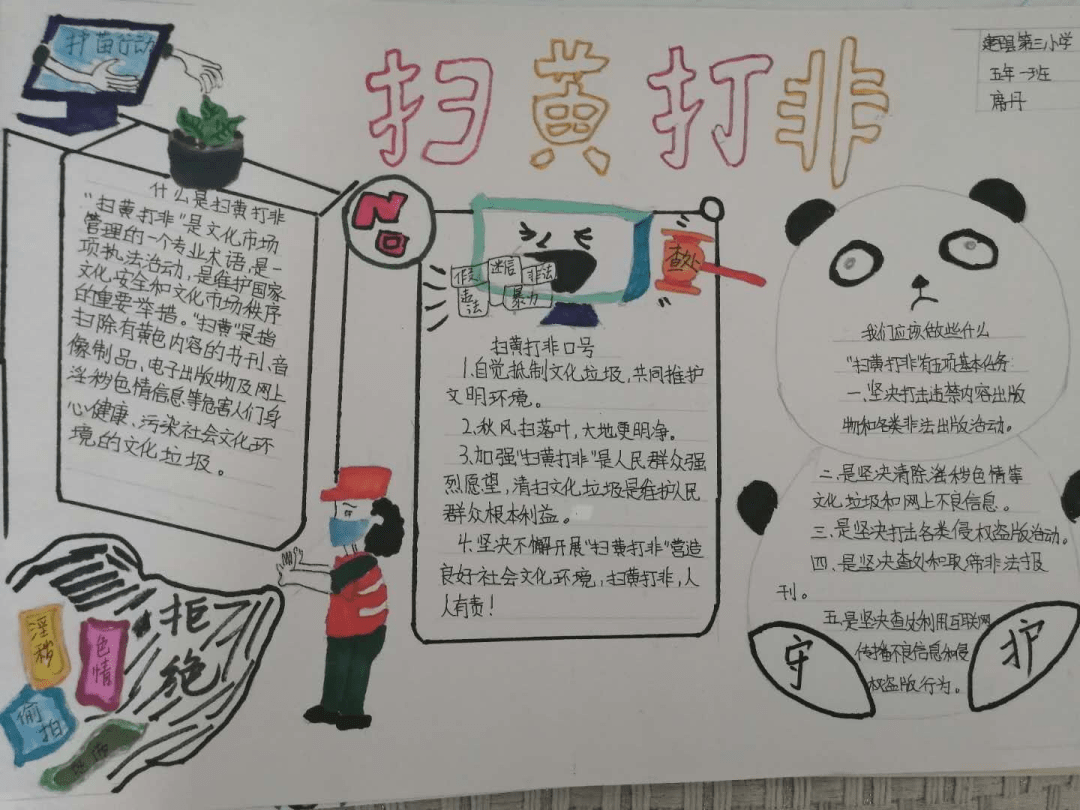 护苗行动
扫黄打非
第三小学
五年一班
席丹
什么是扫黄打非
"扫黄打非"是文化市场
管理的一个专业术语,是一
项执法活动,是维护国家
文化安全和文化市场秩序
的重要举措。"扫黄"是指
扫除有黄色内容的书刊、音
像制品、电子出版物及网上
淫秽色情信息等危害人们身
心健康、污染社会文化环
境的文化垃圾。
20
迷信
非法
暴力
查处
扫黄打非口号
1.自觉抵制文化垃圾,共同维护
文明环境。
2.秋风扫落叶,大地更明净。
3.加强"扫黄打非"是人民群众强
烈愿望,清扫文化垃圾是维护人民
群众根本利益。
4.坚决不懈开展"扫黄打非"营造
良好社会文化环境,扫黄打非,人
人有责!
我们应该做些什么
"扫黄打非"有五项基本任务:
一、坚决打击违禁内容出版
物和各类非法出版活动。
二、是坚决清除淫秽色情等
文化垃圾和网上不良信息。
三、是坚决打击各类侵权盗版活动。
四、是坚决查处和取缔非法报
刊。
五、是坚决查处利用互联网
传播不良信息和侵
权盗版行为。
守
护
拒
绝
淫秽
色情
偷拍